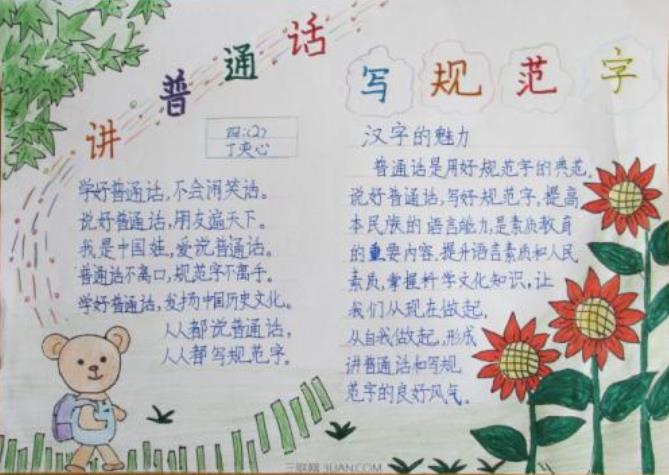 讲普通话
写规范字
四(2)
丁奕心
学好普通话,不会闹笑话。
说好普通话,朋友遍天下。
我是中国娃,爱说普通话。
普通话不离口,规范字不离手。
学好普通话,发扬中国历史文化。
人人都说普通话,
人人都写规范字。
汉字的魅力
普通话是用好规范字的典范。
说好普通话,写好规范字,提高
本民族的语言能力,是素质教育
的重要内容。提升语言素质和人民
素质,掌握科学文化知识,让
我们从现在做起,
从自我做起,形成
讲普通话和写规
范字的良好风气。
三联网 3LIAN.COM